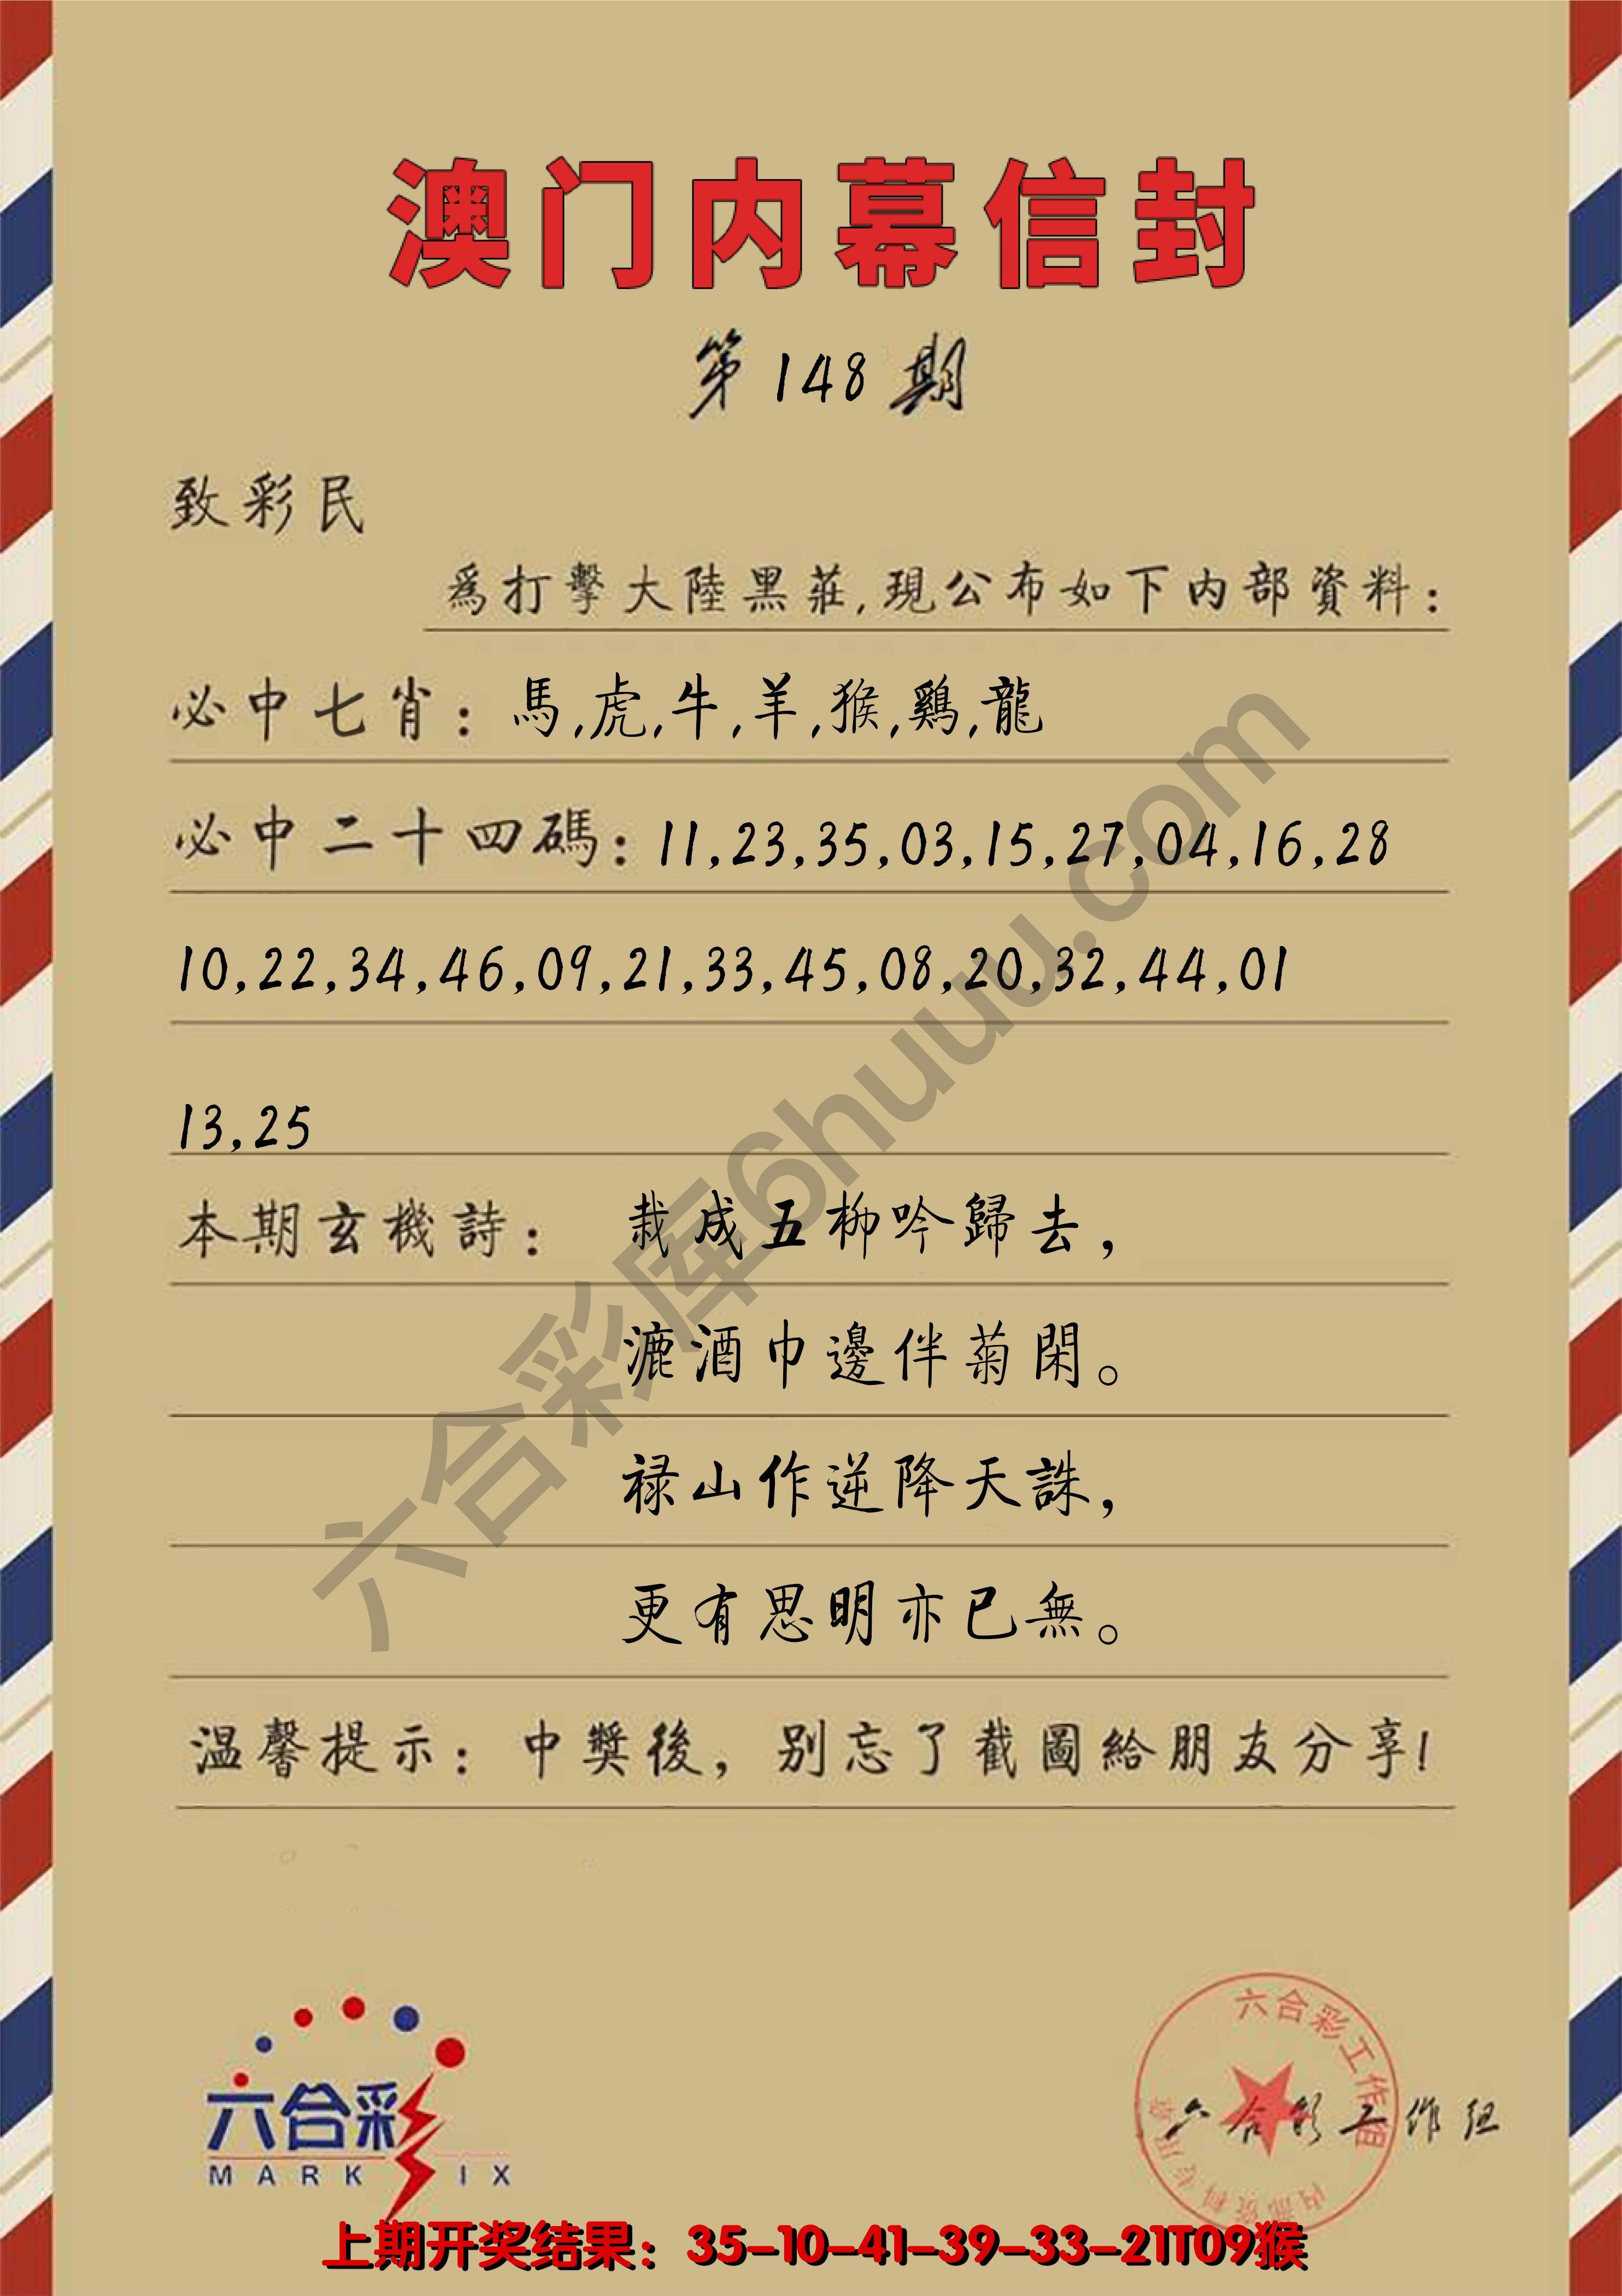 澳门内幕信封
第148期
致彩民
爲打擊大陸黑莊,現公布如下内部資料:
必中七肖:馬,虎,牛,羊,猴,鷄,龍
必中二十四碼:11,23,35,03,15,27,04,16,28
10,22,34,46,09,21,33,45,08,20,32,44,01
13,25
本期玄機詩: 栽成五柳吟歸去,
漉酒巾邊伴菊閑。
禄山作逆降天誅,
更有思明亦已無。
温馨提示:中獎後,别忘了截圖給朋友分享!
六合彩库6huuu.com
六合彩
MARK IX
六合彩工作组
内部资料专用章
六合彩工作组
上期开奖结果:35-10-41-39-33-21T09猴